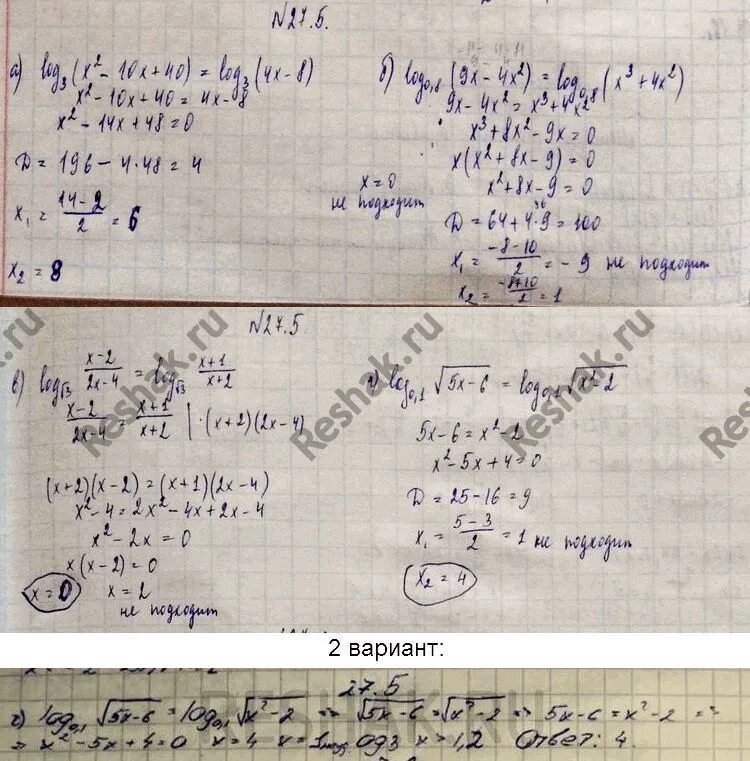 №27.5.
а) log₃(x² − 10x + 40) = log₃(4x − 8)
x² − 10x + 40 = 4x − 8
x² − 14x + 48 = 0
D = 196 − 4·48 = 4
x₁ = (14 − 2)/2 = 6
x₂ = 8
б) log₀,₈(9x − 4x²) = log₀,₈(x³ + 4x²)
9x − 4x² = x³ + 4x²
x³ + 8x² − 9x = 0
x(x² + 8x − 9) = 0
x = 0
не подходит
x² + 8x − 9 = 0
D = 64 + 4·9 = 100
36
x₁ = (−8 − 10)/2 = −9 не подходит
x₂ = (−8 + 10)/2 = 1
№27.5.
в) log√3 (x − 2)/(2x − 4) = log√3 (x + 1)/(x + 2)
(x − 2)/(2x − 4) = (x + 1)/(x + 2) | · (x + 2)(2x − 4)
(x + 2)(x − 2) = (x + 1)(2x − 4)
x² − 4 = 2x² − 4x + 2x − 4
x² − 2x = 0
x(x − 2) = 0
x = 0 x = 2
не подходит
г) log₀,₁ √(5x − 6) = log₀,₁ √(x² − 2)
5x − 6 = x² − 2
x² − 5x + 4 = 0
D = 25 − 16 = 9
x₁ = (5 − 3)/2 = 1 не подходит
x₂ = 4
Reshak.ru
Reshak.ru
Reshak.ru
2 вариант:
27.5
г) log₀,₁ √(5x − 6) = log₀,₁ √(x² − 2) => √(5x − 6) = √(x² − 2) => 5x − 6 = x² − 2 =>
=> x² − 5x + 4 = 0 x = 4 x = 1 ОДЗ x > 1,2 Ответ: 4.